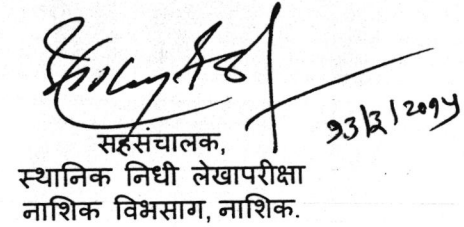 १३|३|२०१५
सहसंचालक,
स्थानिक निधी लेखापरीक्षा
नाशिक विभसाग, नाशिक.